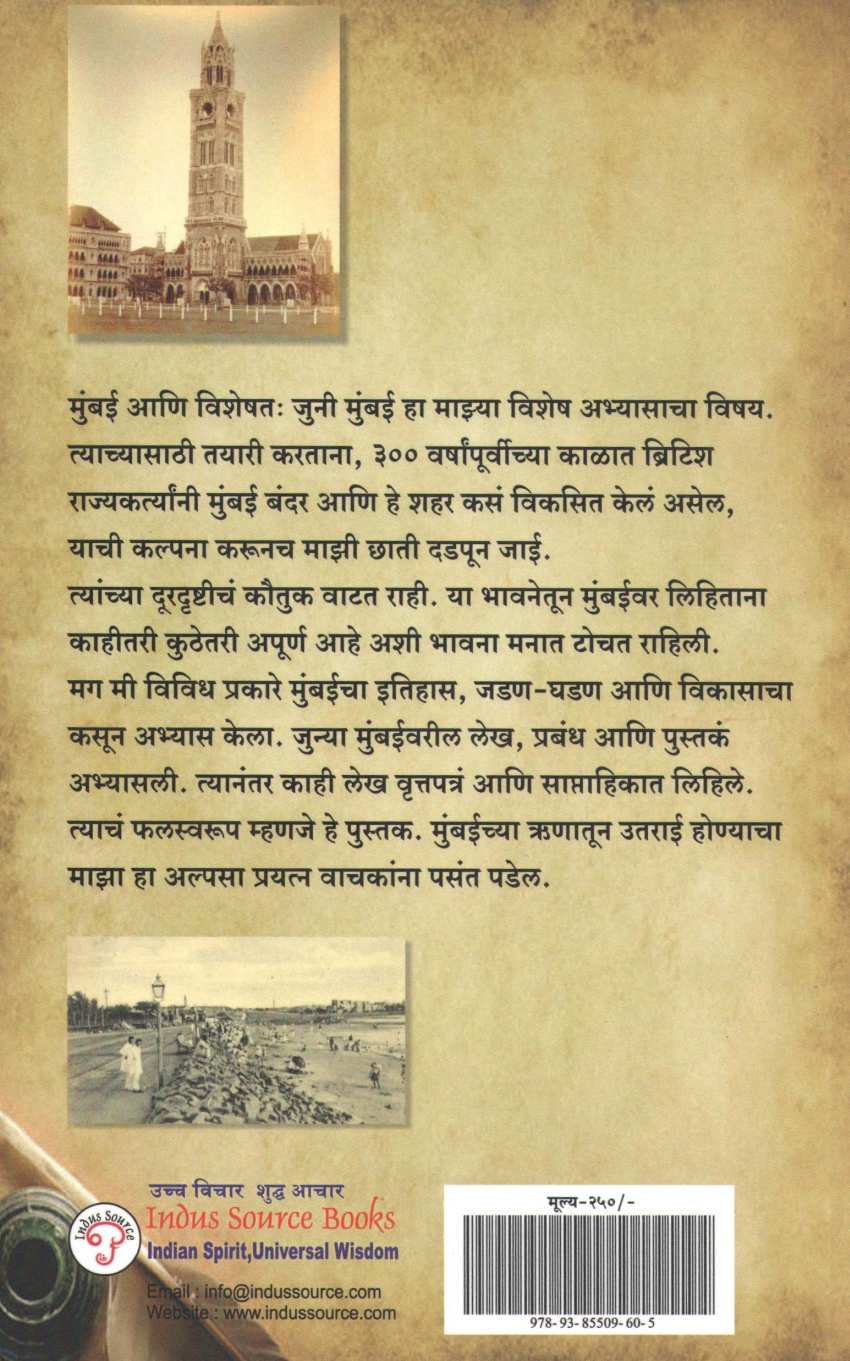 मुंबई आणि विशेषतः जुनी मुंबई हा माझ्या विशेष अभ्यासाचा विषय.
त्याच्यासाठी तयारी करताना, ३०० वर्षांपूर्वीच्या काळात ब्रिटिश
राज्यकर्त्यांनी मुंबई बंदर आणि हे शहर कसं विकसित केलं असेल,
याची कल्पना करूनच माझी छाती दडपून जाई.
त्यांच्या दूरदृष्टीचं कौतुक वाटत राही. या भावनेतून मुंबईवर लिहिताना
काहीतरी कुठेतरी अपूर्ण आहे अशी भावना मनात टोचत राहिली.
मग मी विविध प्रकारे मुंबईचा इतिहास, जडण-घडण आणि विकासाचा
कसून अभ्यास केला. जुन्या मुंबईवरील लेख, प्रबंध आणि पुस्तकं
अभ्यासली. त्यानंतर काही लेख वृत्तपत्रं आणि साप्ताहिकात लिहिले.
त्याचं फलस्वरूप म्हणजे हे पुस्तक. मुंबईच्या ऋणातून उतराई होण्याचा
माझा हा अल्पसा प्रयत्न वाचकांना पसंत पडेल.
उच्च विचार शुद्ध आचार
Indus Source
Indus Source Books
Indian Spirit,Universal Wisdom
Email : info@indussource.com
Website : www.indussource.com
मूल्य-२५०/-
978-93-85509-60-5